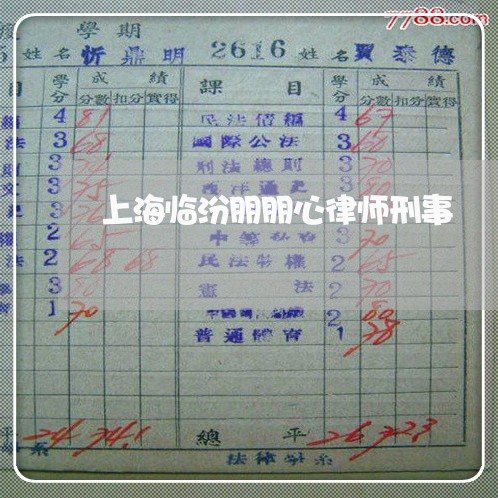 7788.com
學期
姓名 忻鼎明 2616 姓名 賈泰德
目 學分 成績 課目 學分 成績
分數 扣分 實得 分數 扣分 實得
4 81 民法債編 4 67
法 3 68 國際公法 3 60
3 刑法總則 3 70
3 75 西洋通史 3 80
上海临汾朋朋心律师刑事
2 65 3 70
法 2 68 68 民法物權 2 65
3 80 憲法 2 70
1 70 2 80
普通體育 1 78
平 24 74.1 總平 26 72.3
系 法律學系